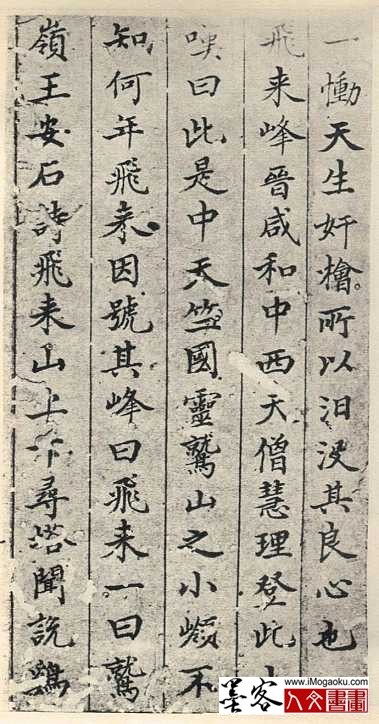 一慟天生奸檜所以汨沒其良心也
飛来峰晉咸和中西天僧慧理登此山
嘆曰此是中天竺國靈鷲山之小嶺不
知何年飛来因號其峰曰飛来一曰鷲
嶺王安石詩飛来山上千尋塔聞說鷄
www.iMogaoku.com
墨客人文書畫